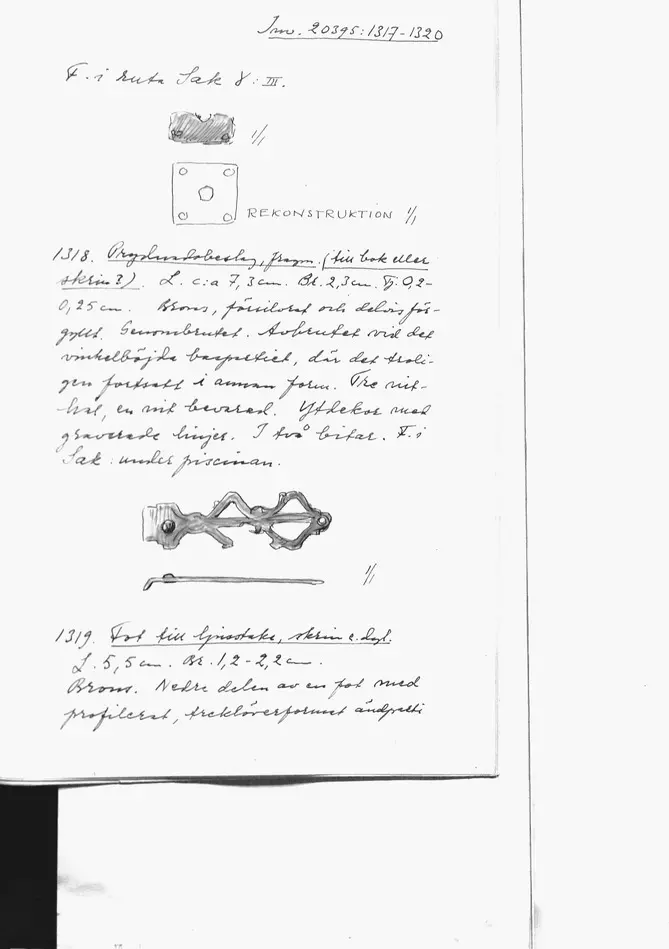 Inv. 20395:1317-1320
F. i ruta Sak 8:III.
1/1
REKONSTRUKTION 1/1
1318. Prydnadsbeslag, fragm. (till bok eller
skrin?). L. c:a 7,3cm. Br. 2,3cm. Tj. 0,2-
0,25cm. Brons, försilvrat och delvis för-
gyllt. Genombrutet. Avbrutet vid det
vinkelböjda baspartiet, där det troli-
gen fortsatt i annan form. Tre nit-
hål, en nit bevarad. Ytdekor med
graverade linjer. I två bitar. F. i
Sak. under piscinan.
1/1
1319. Fot till ljusstake, skrin e. dyl.
L. 5,5cm. Br. 1,2-2,2cm.
Brons. Nedre delen av en fot med
profilerat, treklöverformat ändparti